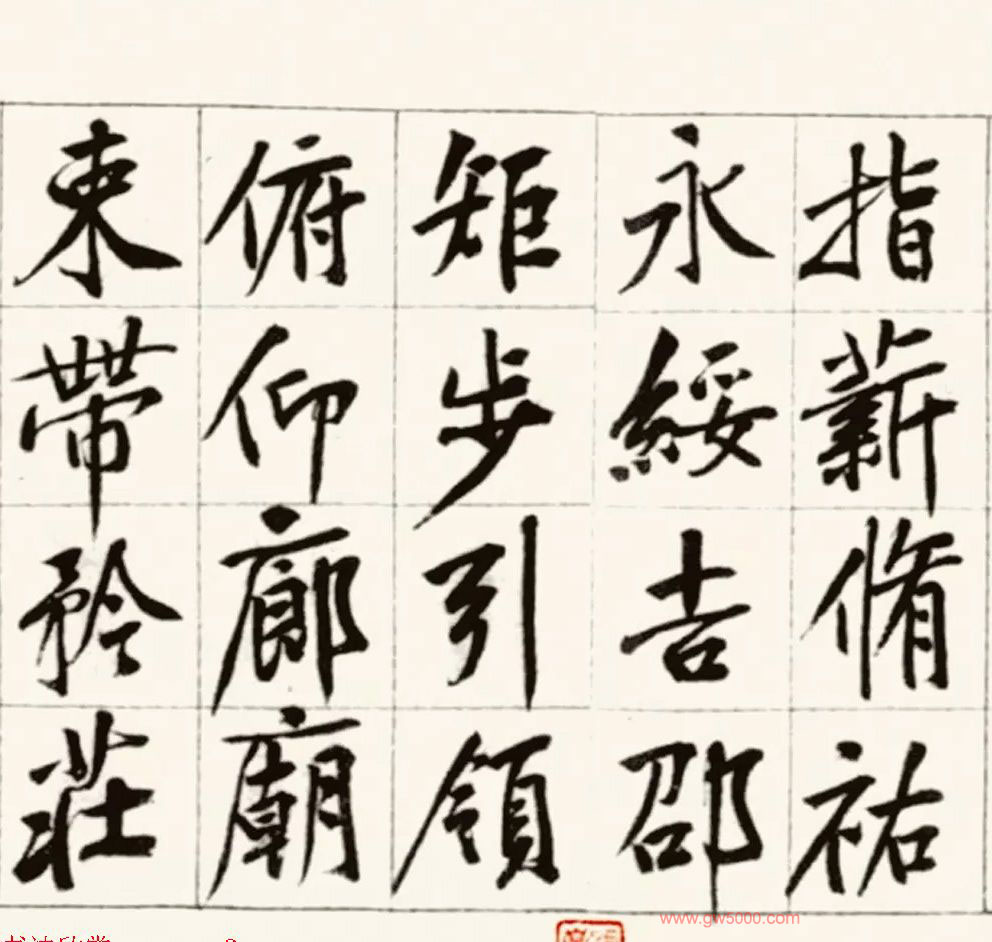 指薪脩祜
永綏吉邵
矩步引領
俯仰廊廟
束帶矜莊
www.gw5000.com